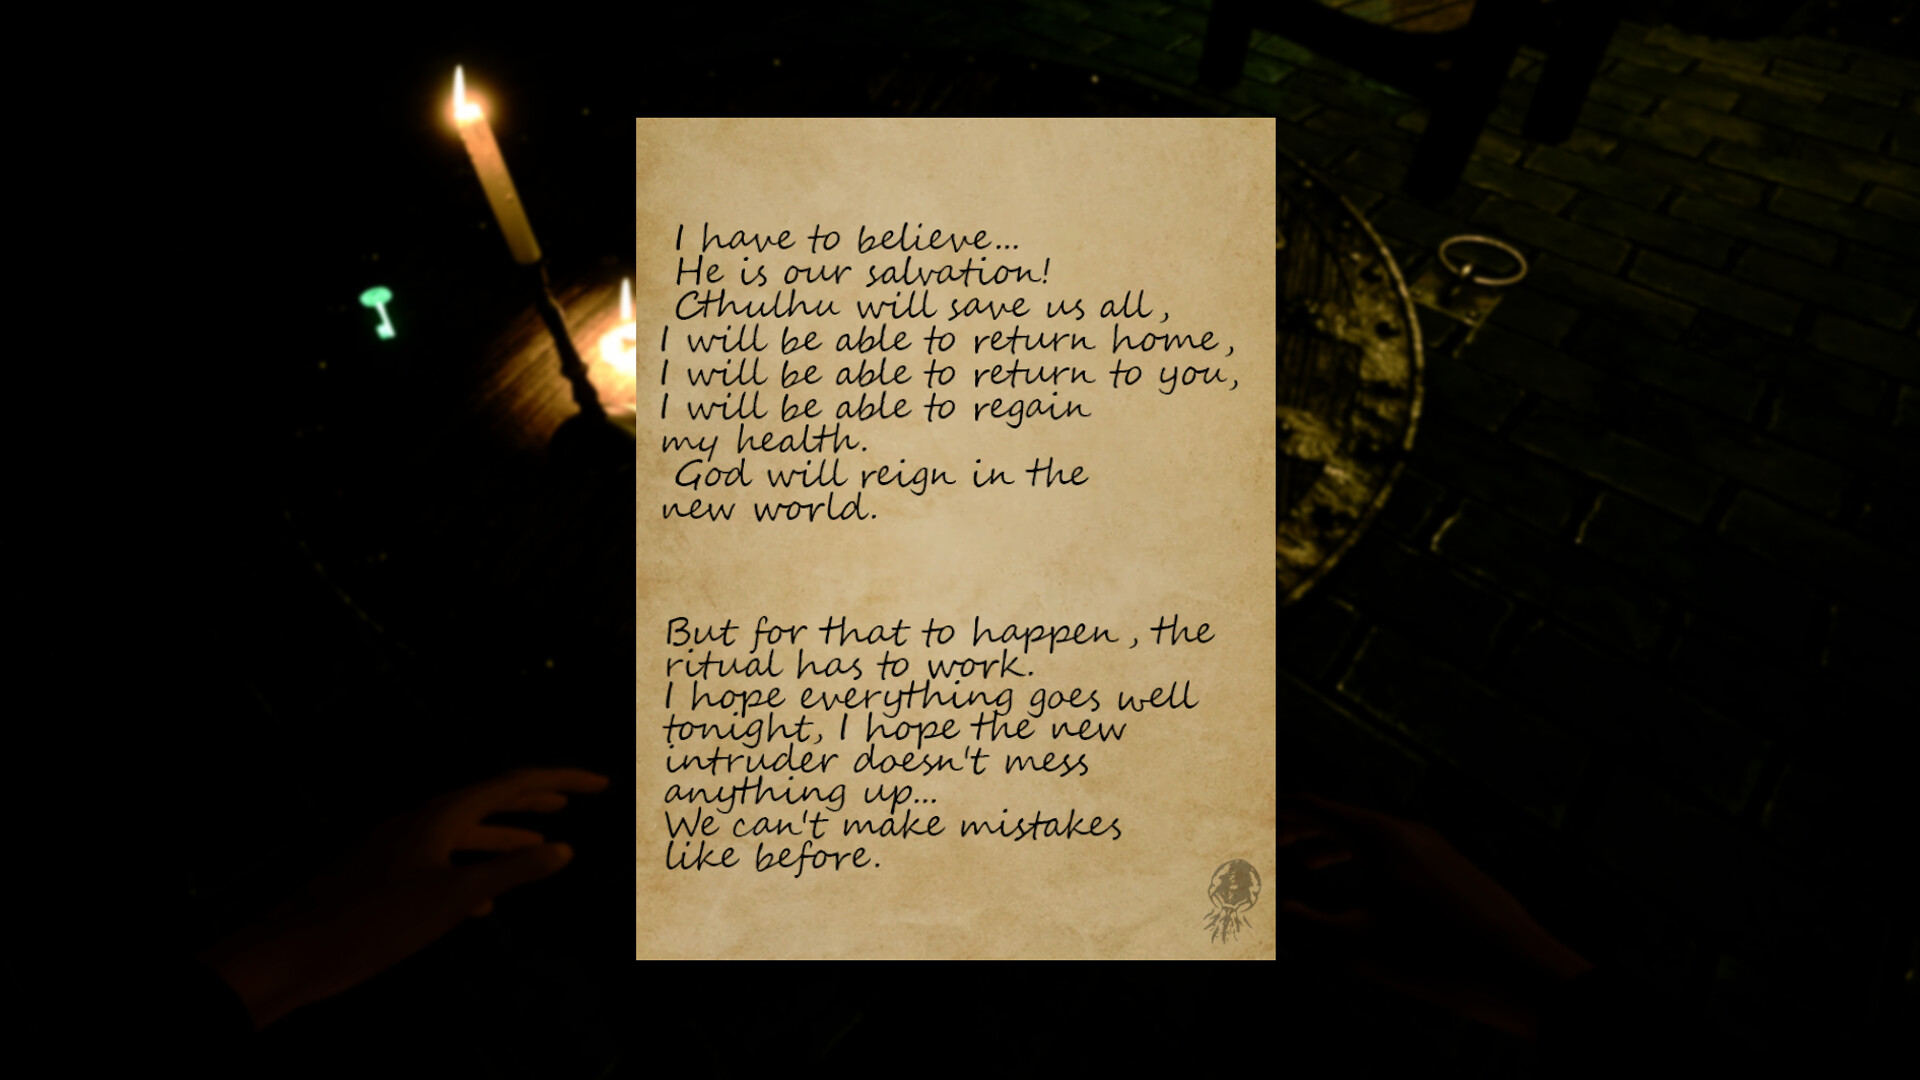 I have to believe...
He is our salvation!
Cthulhu will save us all,
I will be able to return home,
I will be able to return to you,
I will be able to regain
my health.
God will reign in the
new world.
But for that to happen, the
ritual has to work.
I hope everything goes well
tonight, I hope the new
intruder doesn't mess
anything up...
We can't make mistakes
like before.